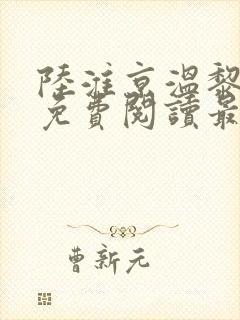 陸淮京溫黎
免費閱讀最
曹新元